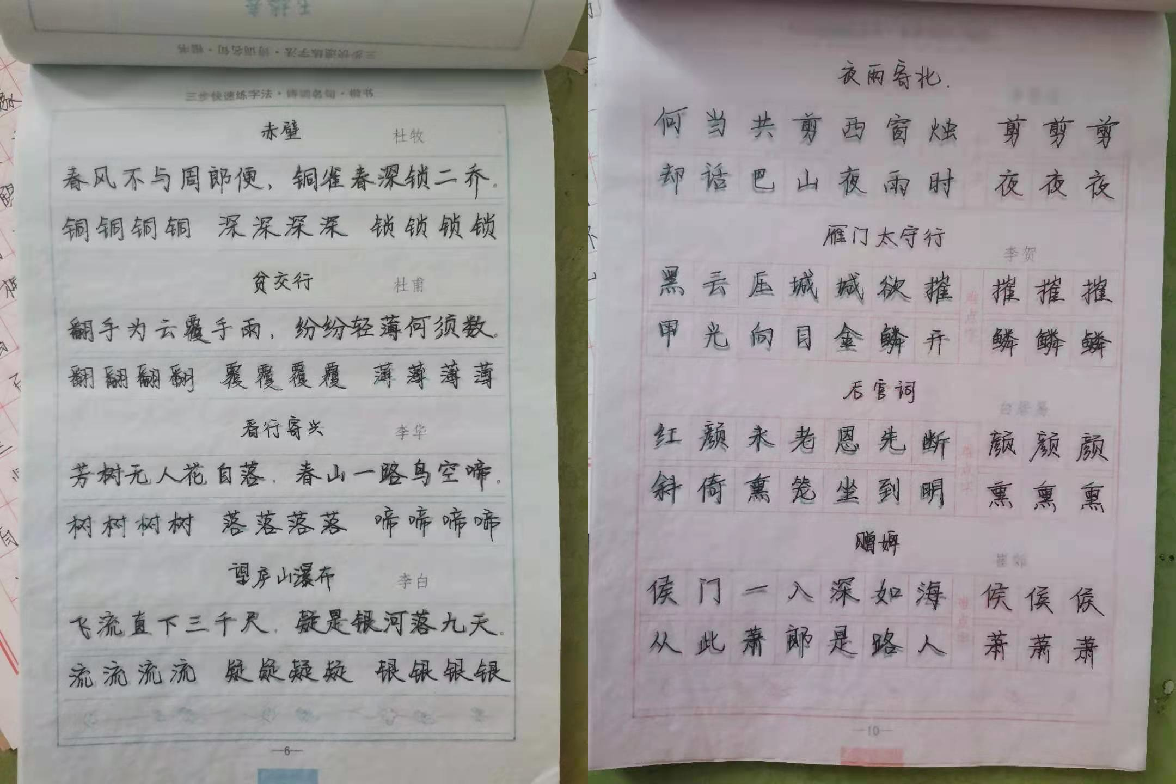 三步快速练字法·诗词名句·楷书
赤壁 杜牧
春风不与周郎便，铜雀春深锁二乔。
铜铜铜铜 深深深深 锁锁锁锁
贫交行 杜甫
翻手为云覆手雨，纷纷轻薄何须数。
翻翻翻翻 覆覆覆覆 薄薄薄薄
春行寄兴 李华
芳树无人花自落，春山一路鸟空啼。
树树树树 落落落落 啼啼啼啼
望庐山瀑布 李白
飞流直下三千尺，疑是银河落九天。
流流流流 疑疑疑疑 银银银银
6
夜雨寄北.
何当共剪西窗烛 剪剪剪
却话巴山夜雨时 夜夜夜
雁门太守行 李贺
黑云压城城欲摧 摧摧摧
甲光向日金鳞开 鳞鳞鳞
后宫词
红颜未老恩先断 颜颜颜
斜倚熏笼坐到明 熏熏熏
赠婢
侯门一入深如海 侯侯侯
从此萧郎是路人 萧萧萧
10